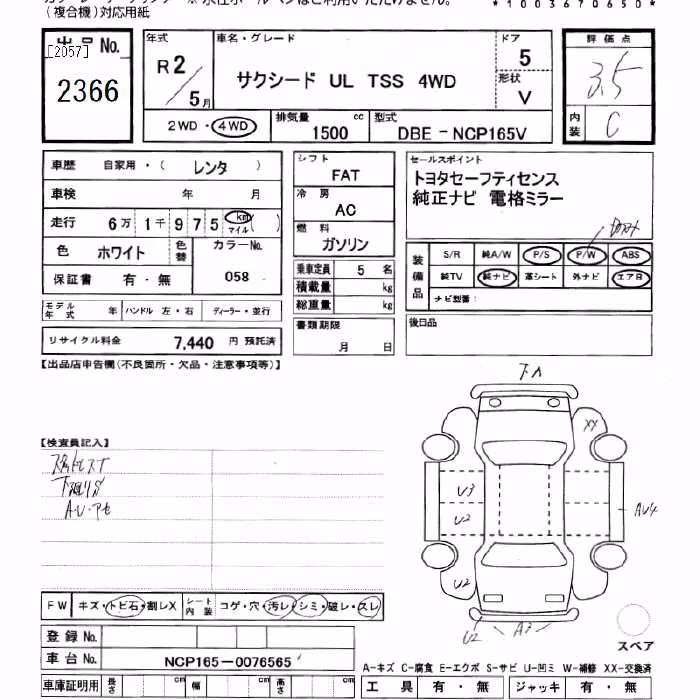 （複合機）対応用紙
*1003670650*
出品No.
[2057]
2366
年式
R2/5月
車名・グレード
サクシード UL TSS 4WD
ドア
5
形状
V
評価点
3.5
内装
C
2WD・4WD
排気量
1500 cc
型式
DBE-NCP165V
車歴 自家用・（ レンタ ）
車検 年 月
走行 6万 1千 9 7 5 km マイル（ ）
色 ホワイト
色替
カラーNo.
058
保証書 有・無
モデル年式 年
ハンドル 左・右
ディーラー・並行
リサイクル料金 7,440 円 預託済
シフト
FAT
冷房
AC
燃料
ガソリン
乗車定員 5 名
積載量 kg
総重量 kg
書類期限
月 日
セールスポイント
トヨタセーフティセンス
純正ナビ 電格ミラー
装備品
S/R 純A/W P/S P/W ABS
純TV 純ナビ 革シート 外ナビ エアB
ナビ型番：
後日品
【出品店申告欄（不良箇所・欠品・注意事項等）】
【検査員記入】
下廻りS
A・U・アセ
下A
XX
U3
U2
AU4
U2
U2
A3
スペア
FW キズ・トビ石・割レX
シート内装 コゲ・穴・汚レ・シミ・破レ・スレ
登録No.
車台No. NCP165-0076565
車庫証明用 長さ cm 幅 cm 高さ cm
A-キズ C-腐食 E-エクボ S-サビ U-凹ミ W-補修 XX-交換済
工具 有・無 ジャッキ 有・無